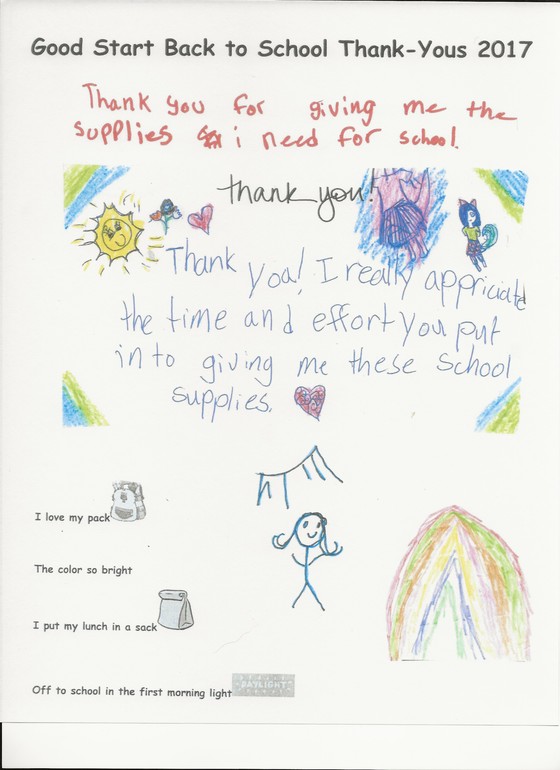 Good Start Back to School Thank-Yous 2017
Thank you for giving me the
supplies i need for school.
thank you!
Thank you! I really appriciate
the time and effort you put
into giving me these school
supplies.
I love my pack
The color so bright
I put my lunch in a sack
Off to school in the first morning light
DAYLIGHT